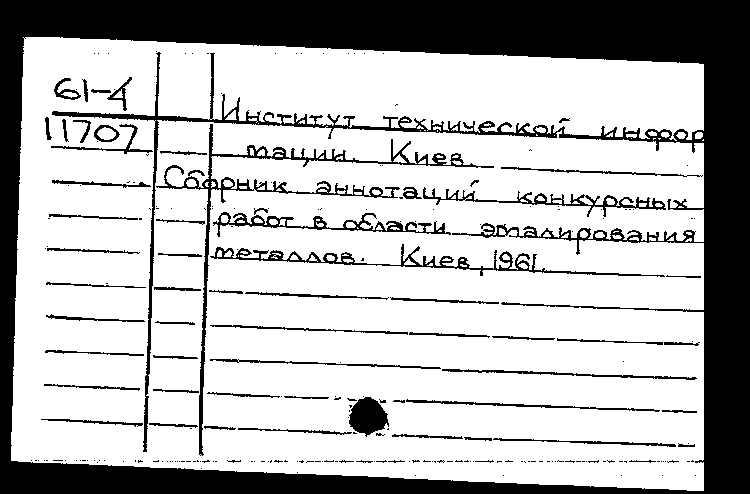 61-4
11707
Институт технической инфор
мации. Киев.
Сборник аннотаций конкурсных
работ в области эмалирования
металлов. Киев, 1961.